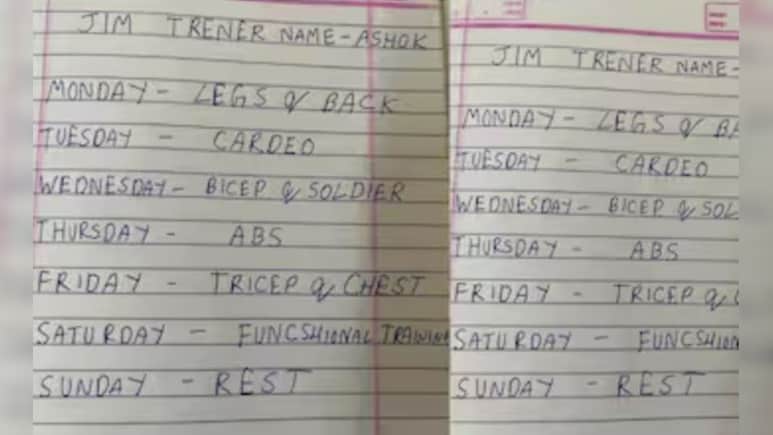 JIM TRENER NAME - ASHOK
MONDAY - LEGS & BACK
TUESDAY - CARDEO
WEDNESDAY - BICEP & SOLDIER
THURSDAY - ABS
FRIDAY - TRICEP & CHEST
SATURDAY - FUNCSHIONAL TRAINING
SUNDAY - REST
JIM TRENER NAME -
MONDAY - LEGS & BA
TUESDAY - CARDEO
WEDNESDAY - BICEP & SOL
THURSDAY - ABS
FRIDAY - TRICEP &
SATURDAY - FUNCSHION
SUNDAY - REST